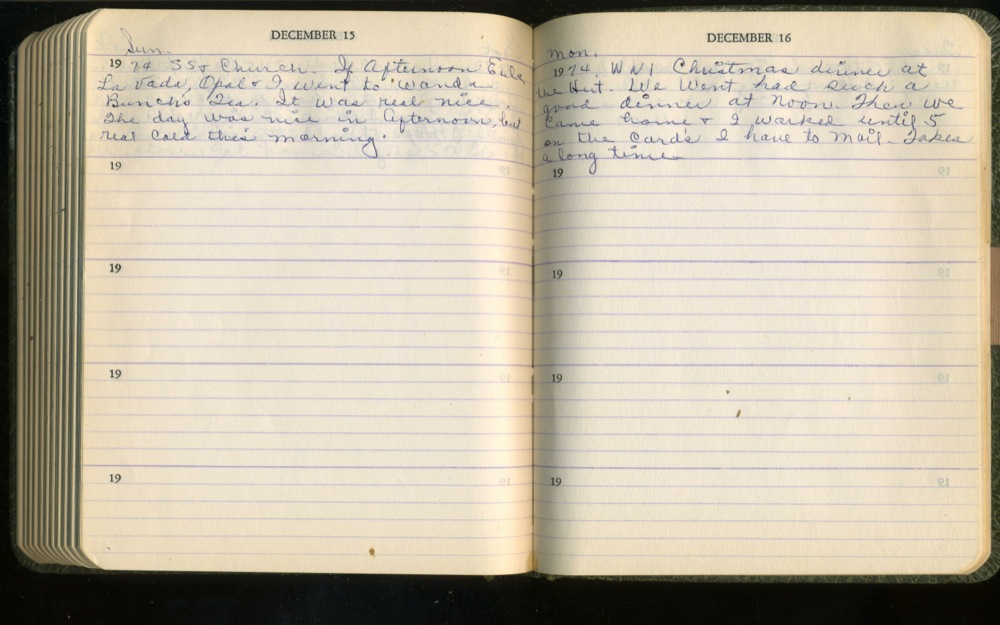 DECEMBER 15
Sun.
1974 SS & Church. If Afternoon Eula,
La Vada, Opal & I went to Wanda
Bunch's Tea. It was real nice.
The day was nice in afternoon, but
real cold this morning.
19
19
19
19
DECEMBER 16
Mon.
1974. WNI Christmas dinner at
the Hut. We went had such a
good dinner at noon. Then we
came home & I worked until 5
on the cards I have to mail. Takes
a long time
19
19
19
19